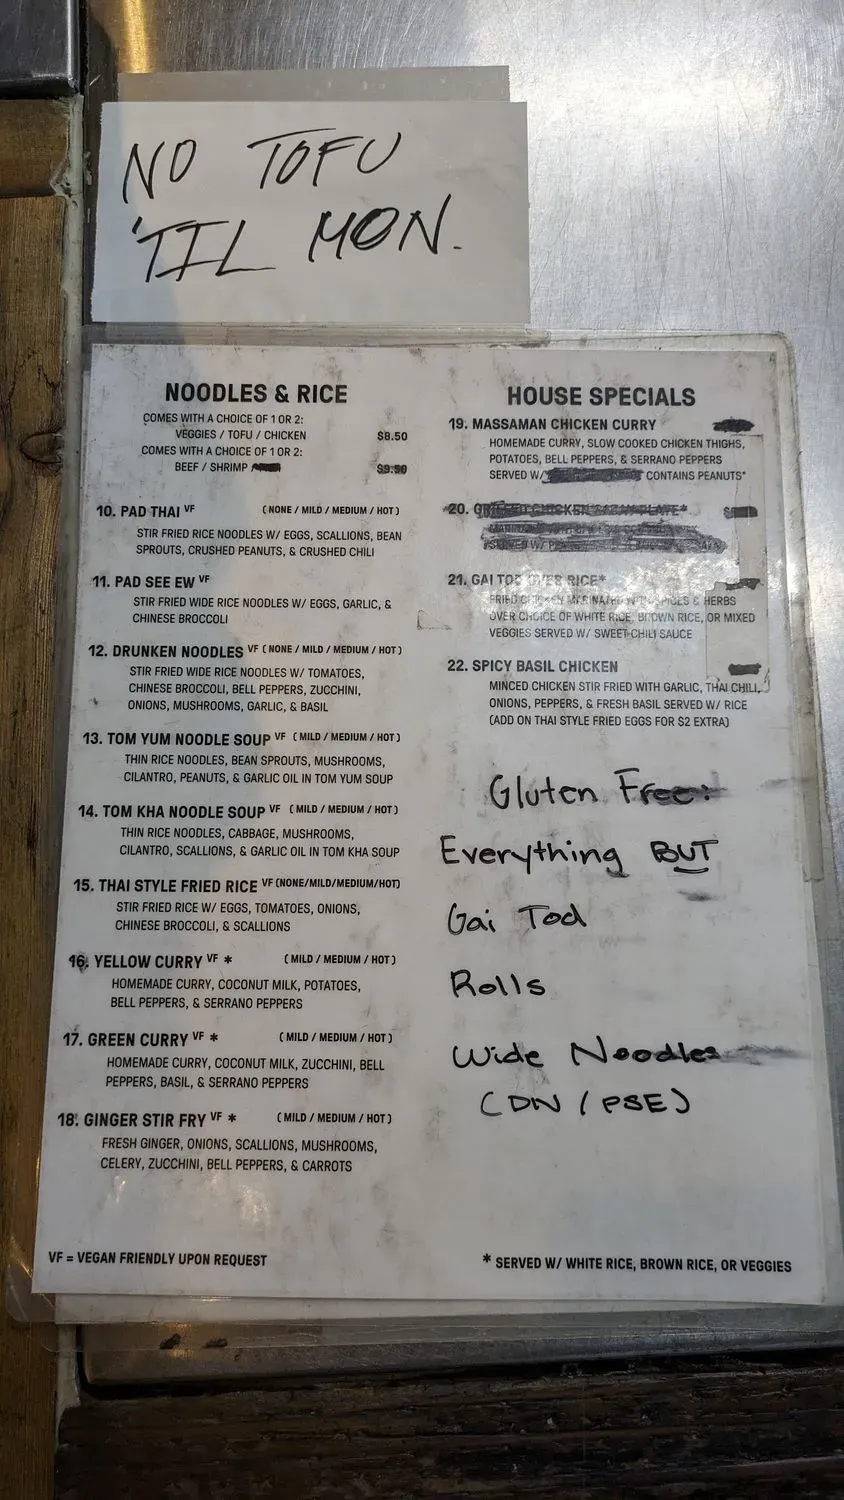 NO TOFU
'TIL MON.
NOODLES & RICE
COMES WITH A CHOICE OF 1 OR 2:
VEGGIES / TOFU / CHICKEN $8.50
COMES WITH A CHOICE OF 1 OR 2:
BEEF / SHRIMP $9.50
10. PAD THAI VF (NONE / MILD / MEDIUM / HOT)
STIR FRIED RICE NOODLES W/ EGGS, SCALLIONS, BEAN
SPROUTS, CRUSHED PEANUTS, & CRUSHED CHILI
11. PAD SEE EW VF
STIR FRIED WIDE RICE NOODLES W/ EGGS, GARLIC, &
CHINESE BROCCOLI
12. DRUNKEN NOODLES VF (NONE / MILD / MEDIUM / HOT)
STIR FRIED WIDE RICE NOODLES W/ TOMATOES,
CHINESE BROCCOLI, BELL PEPPERS, ZUCCHINI,
ONIONS, MUSHROOMS, GARLIC, & BASIL
13. TOM YUM NOODLE SOUP VF (MILD / MEDIUM / HOT)
THIN RICE NOODLES, BEAN SPROUTS, MUSHROOMS,
CILANTRO, PEANUTS, & GARLIC OIL IN TOM YUM SOUP
14. TOM KHA NOODLE SOUP VF (MILD / MEDIUM / HOT)
THIN RICE NOODLES, CABBAGE, MUSHROOMS,
CILANTRO, SCALLIONS, & GARLIC OIL IN TOM KHA SOUP
15. THAI STYLE FRIED RICE VF (NONE/MILD/MEDIUM/HOT)
STIR FRIED RICE W/ EGGS, TOMATOES, ONIONS,
CHINESE BROCCOLI, & SCALLIONS
16. YELLOW CURRY VF * (MILD / MEDIUM / HOT)
HOMEMADE CURRY, COCONUT MILK, POTATOES,
BELL PEPPERS, & SERRANO PEPPERS
17. GREEN CURRY VF * (MILD / MEDIUM / HOT)
HOMEMADE CURRY, COCONUT MILK, ZUCCHINI, BELL
PEPPERS, BASIL, & SERRANO PEPPERS
18. GINGER STIR FRY VF * (MILD / MEDIUM / HOT)
FRESH GINGER, ONIONS, SCALLIONS, MUSHROOMS,
CELERY, ZUCCHINI, BELL PEPPERS, & CARROTS
VF = VEGAN FRIENDLY UPON REQUEST
HOUSE SPECIALS
19. MASSAMAN CHICKEN CURRY
HOMEMADE CURRY, SLOW COOKED CHICKEN THIGHS,
POTATOES, BELL PEPPERS, & SERRANO PEPPERS
SERVED W/ CONTAINS PEANUTS*
20.
SERVED W/
21. GAI TOD OVER RICE*
FRIED CHICKEN MARINATED WITH SPICES & HERBS
OVER CHOICE OF WHITE RICE, BROWN RICE, OR MIXED
VEGGIES SERVED W/ SWEET CHILI SAUCE
22. SPICY BASIL CHICKEN
MINCED CHICKEN STIR FRIED WITH GARLIC, THAI CHILI,
ONIONS, PEPPERS, & FRESH BASIL SERVED W/ RICE
(ADD ON THAI STYLE FRIED EGGS FOR $2 EXTRA)
Gluten Free:
Everything BUT
Gai Tod
Rolls
Wide Noodles
(DN / PSE)
* SERVED W/ WHITE RICE, BROWN RICE, OR VEGGIES